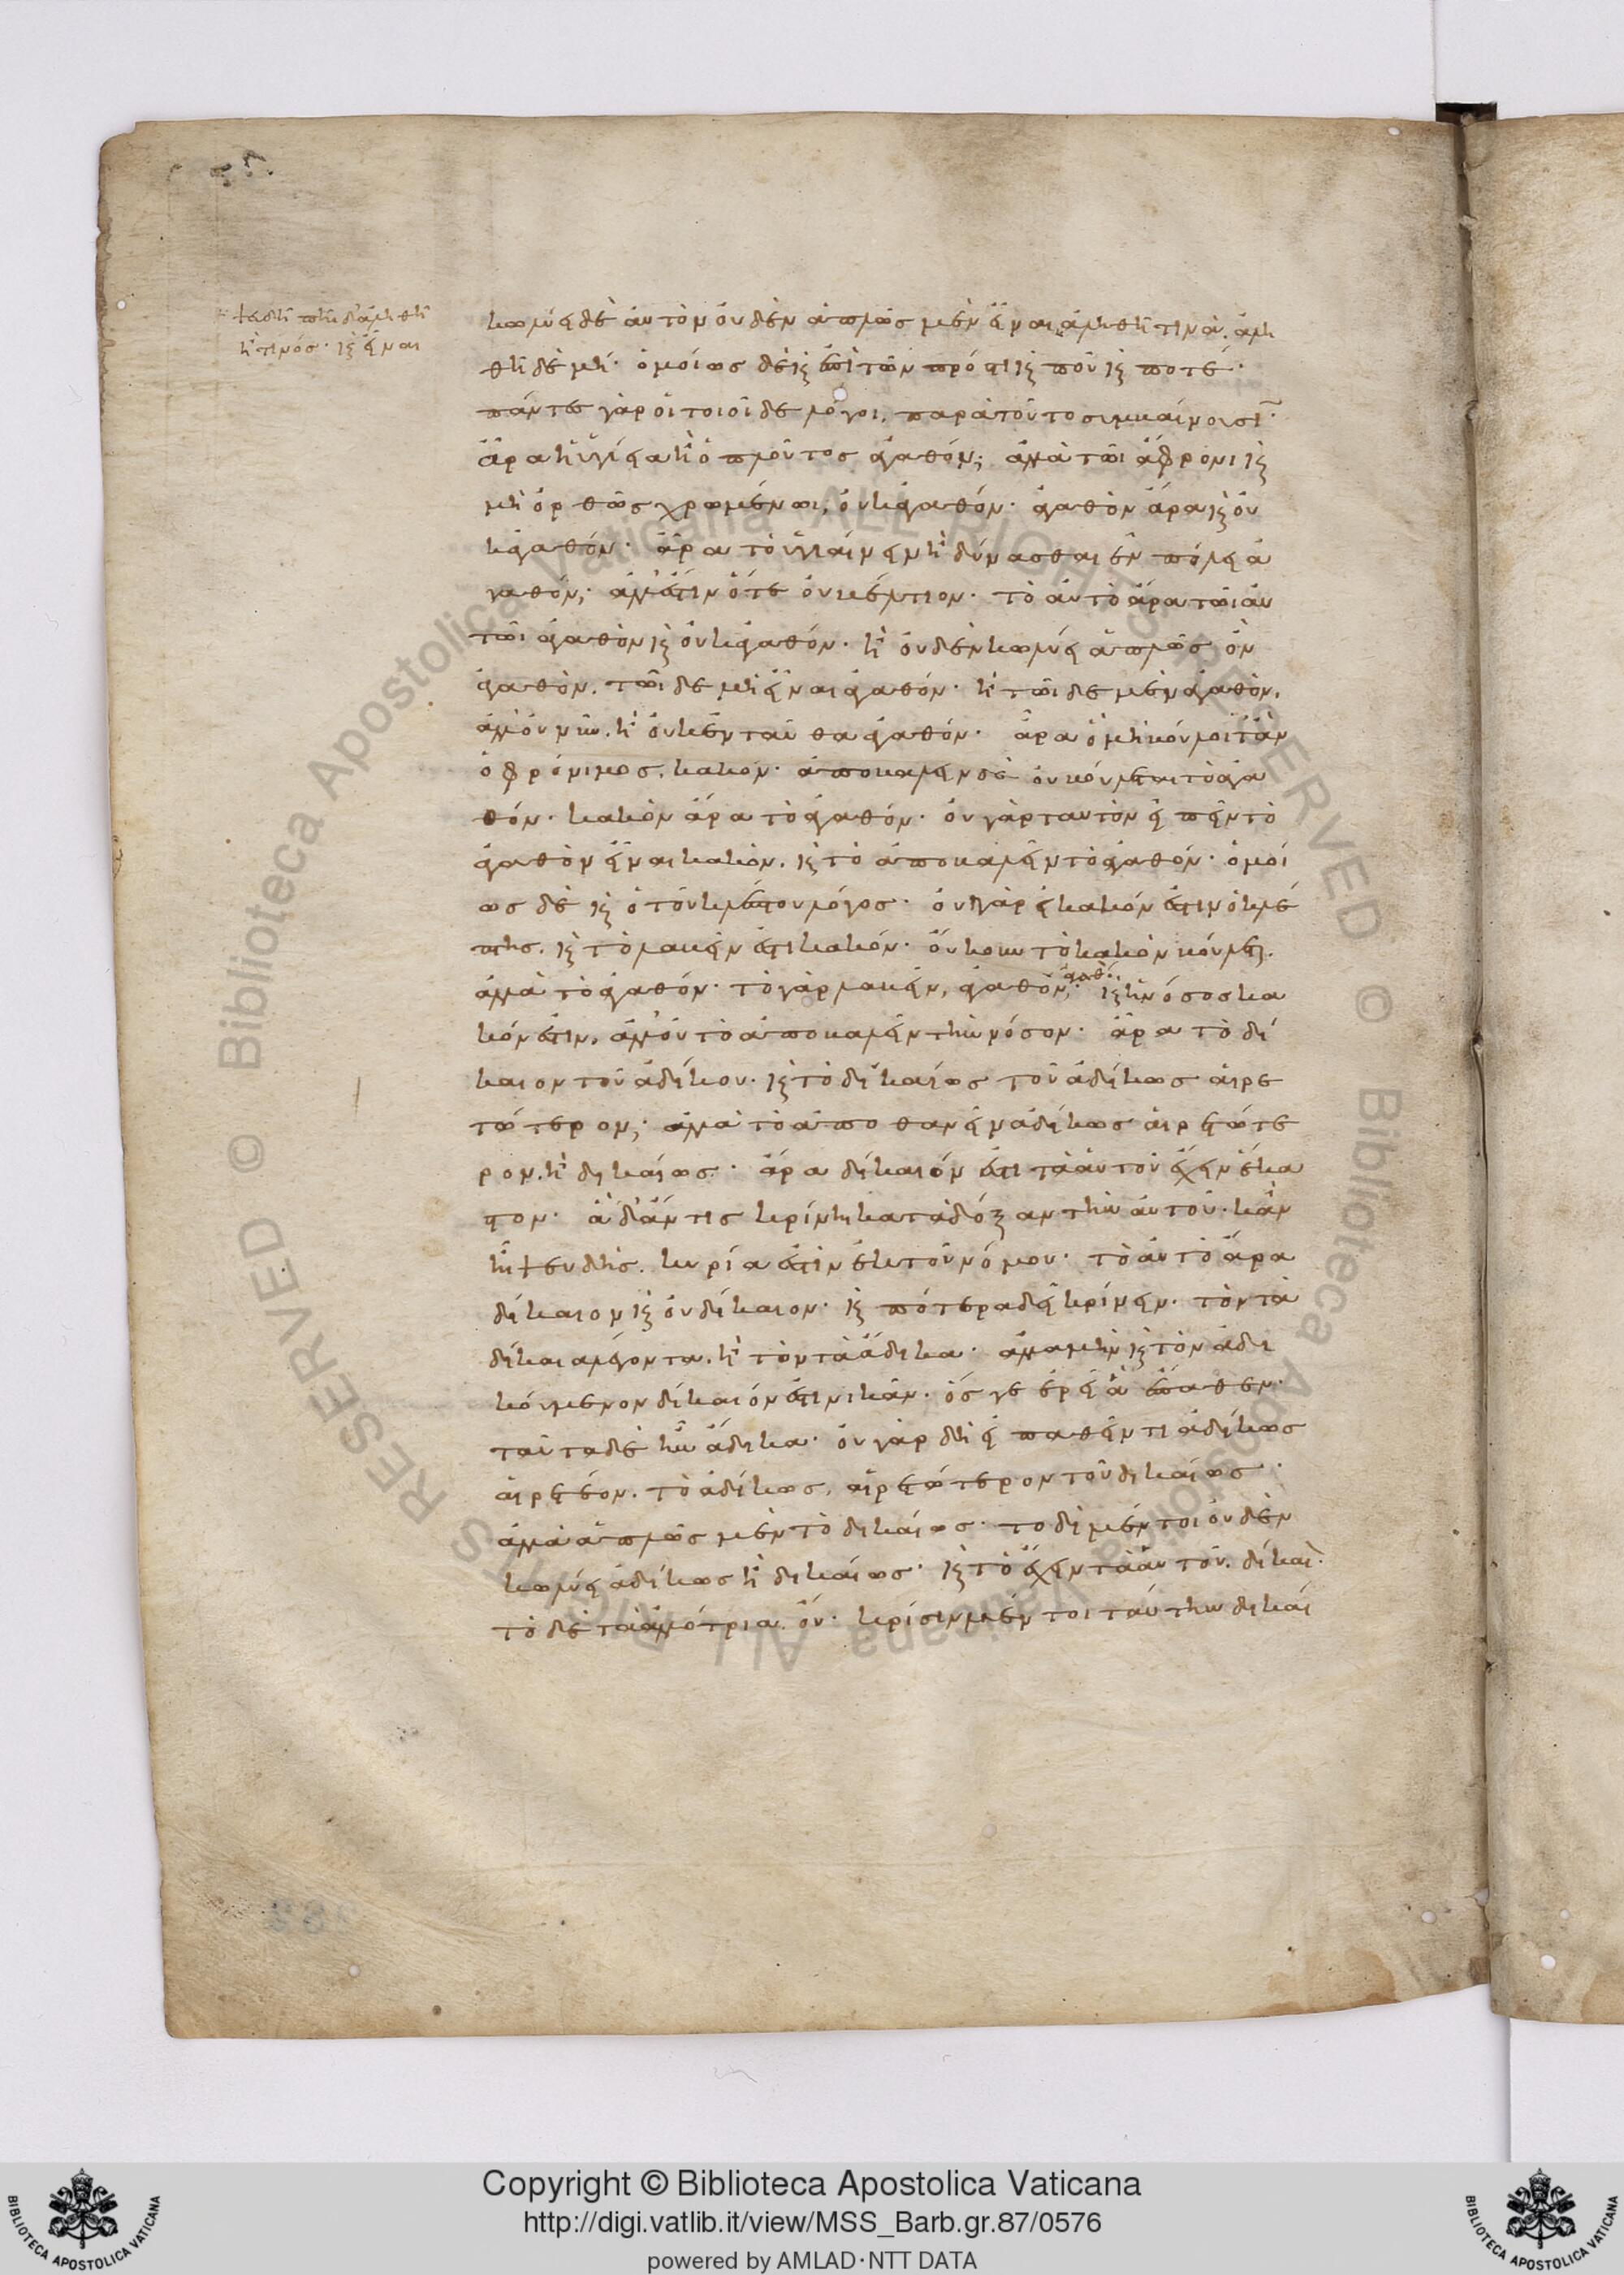 ψευδῆ πῆι δ' ἀληθῆ
ἢ τινός· καὶ εἶναι
κωλύει δὲ αὐτὸν οὐδὲν ἁπλῶς μὲν εἶναι ἀληθῆ τινὰ. ἀλη
θῆ δὲ μή· ὁμοίως δὲ καὶ ἐπὶ τῶν πρός τι καὶ ποῦ καὶ ποτέ·
πάντες γὰρ οἱ τοιοίδε λόγοι, παρὰ τοῦτο συμβαίνουσιν·
ἆρα ἡ ὑγίεια ἢ ὁ πλοῦτος ἀγαθόν; ἀλλὰ τῶι ἄφρονι καὶ
μὴ ὀρθῶς χρωμένωι, οὐκ ἀγαθόν· ἀγαθὸν ἄρα καὶ οὐ
κ ἀγαθόν· ἆρα τὸ ὑγιαίνειν ἢ δύνασθαι ἐν πόλει ἀ
γαθόν; ἀλλ' ἔστιν ὅτε οὐ βέλτιον· τὸ αὐτὸ ἄρα τῶι αὐ
τῶι ἀγαθὸν καὶ οὐκ ἀγαθόν· ἢ οὐδὲν κωλύει ἁπλῶς ὂν
ἀγαθὸν, τῶιδε μὴ εἶναι ἀγαθόν· ἢ τῶιδε μὲν ἀγαθὸν,
ἀλλ' οὐ νῦν, ἢ οὐκ ἐνταῦθα ἀγαθόν· ἆρα ὃ μὴ βούλοιτ' ἂν
ὁ φρόνιμος, κακόν· ἀποβαλεῖν δὲ οὐ βούλεται τὸ ἀγα
θόν· κακὸν ἄρα τὸ ἀγαθόν· οὐ γὰρ ταυτὸν εἰπεῖν τὸ
ἀγαθὸν εἶναι κακὸν, καὶ τὸ ἀποβαλεῖν τὸ ἀγαθόν· ὁμοί
ως δὲ καὶ ὁ τοῦ κλέπτου λόγος· οὐ γὰρ εἰ κακόν ἐστιν ὁ κλέ
πτης, καὶ τὸ λαβεῖν ἐστι κακόν· οὔκουν τὸ κακὸν βούλεται.
ἀλλὰ τὸ ἀγαθόν· τὸ γὰρ λαβεῖν, ἀγαθὸν ἀγαθόν· καὶ ἡ νόσος κα
κόν ἐστιν, ἀλλ' οὐ τὸ ἀποβαλεῖν τὴν νόσον· ἆρα τὸ δί
καιον τοῦ ἀδίκου· καὶ τὸ δικαίως τοῦ ἀδίκως αἱρε
τώτερον; ἀλλὰ τὸ ἀποθανεῖν ἀδίκως αἱρετώτε
ρον. ἢ δικαίως· ἆρα δίκαιόν ἐστι τὰ αὑτοῦ ἔχειν ἕκα
στον· ἃ δ' ἄν τις κρίνηι κατὰ δόξαν τὴν αὑτοῦ· κἂν
ἦι ψευδής, κυρία ἐστὶν ἐκ τοῦ νόμου· τὸ αὐτὸ ἄρα
δίκαιον καὶ οὐ δίκαιον· καὶ πότερα δεῖ κρίνειν· τὸν τὰ
δίκαια λέγοντα, ἢ τὸν τὰ ἄδικα· ἀλλὰ μὴν καὶ τὸν ἀδι
κούμενον δίκαιόν ἐστι νικᾶν· ὅς γε ἐρεῖ ἃ ἔπαθεν·
ταῦτα δὲ ἦν ἄδικα· οὐ γὰρ δὴ εἰ παθεῖν τι ἀδίκως
αἱρετέον, τὸ ἀδίκως, αἱρετώτερον τοῦ δικαίως·
ἀλλὰ ἁπλῶς μὲν τὸ δικαίως· τοδὶ μέντοι οὐδὲν
κωλύει ἀδίκως ἢ δικαίως· καὶ τὸ ἔχειν τὰ αὑτοῦ, δίκαι·
τὸ δὲ τὰ ἀλλότρια, οὔ· κρίσιν μέντοι ταύτην δικαί
Copyright © Biblioteca Apostolica Vaticana
http://digi.vatlib.it/view/MSS_Barb.gr.87/0576
powered by AMLAD·NTT DATA